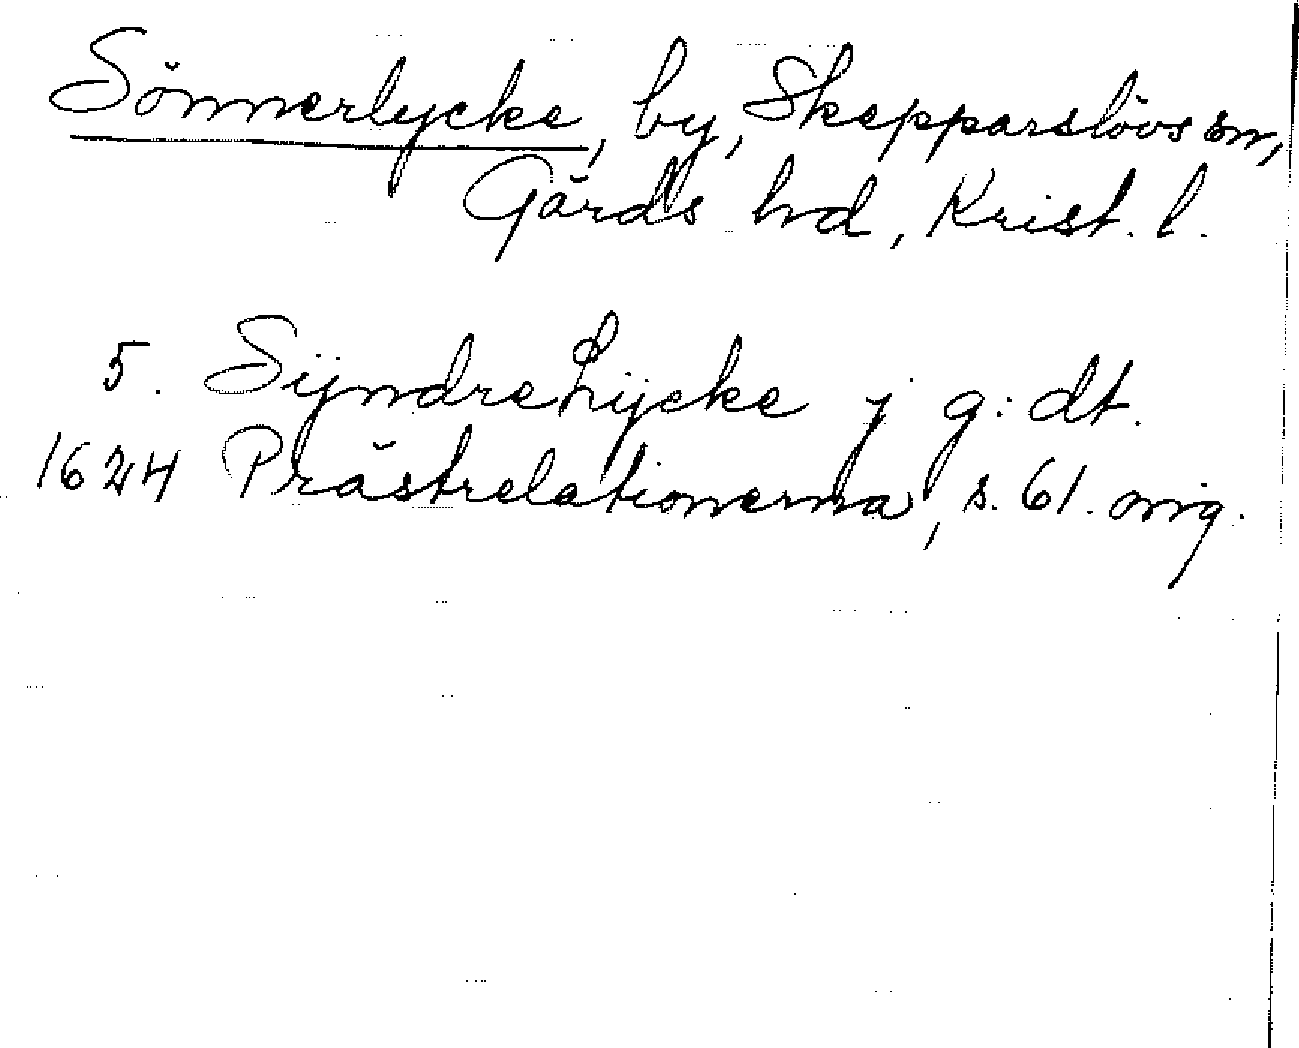 Sönnerlycke, by, Skepparslövs sn,
Gärds hd, Krist. l.
5. SÿndreLÿcke j g: dt.
1624 Prästrelationerna, s. 61. orig.